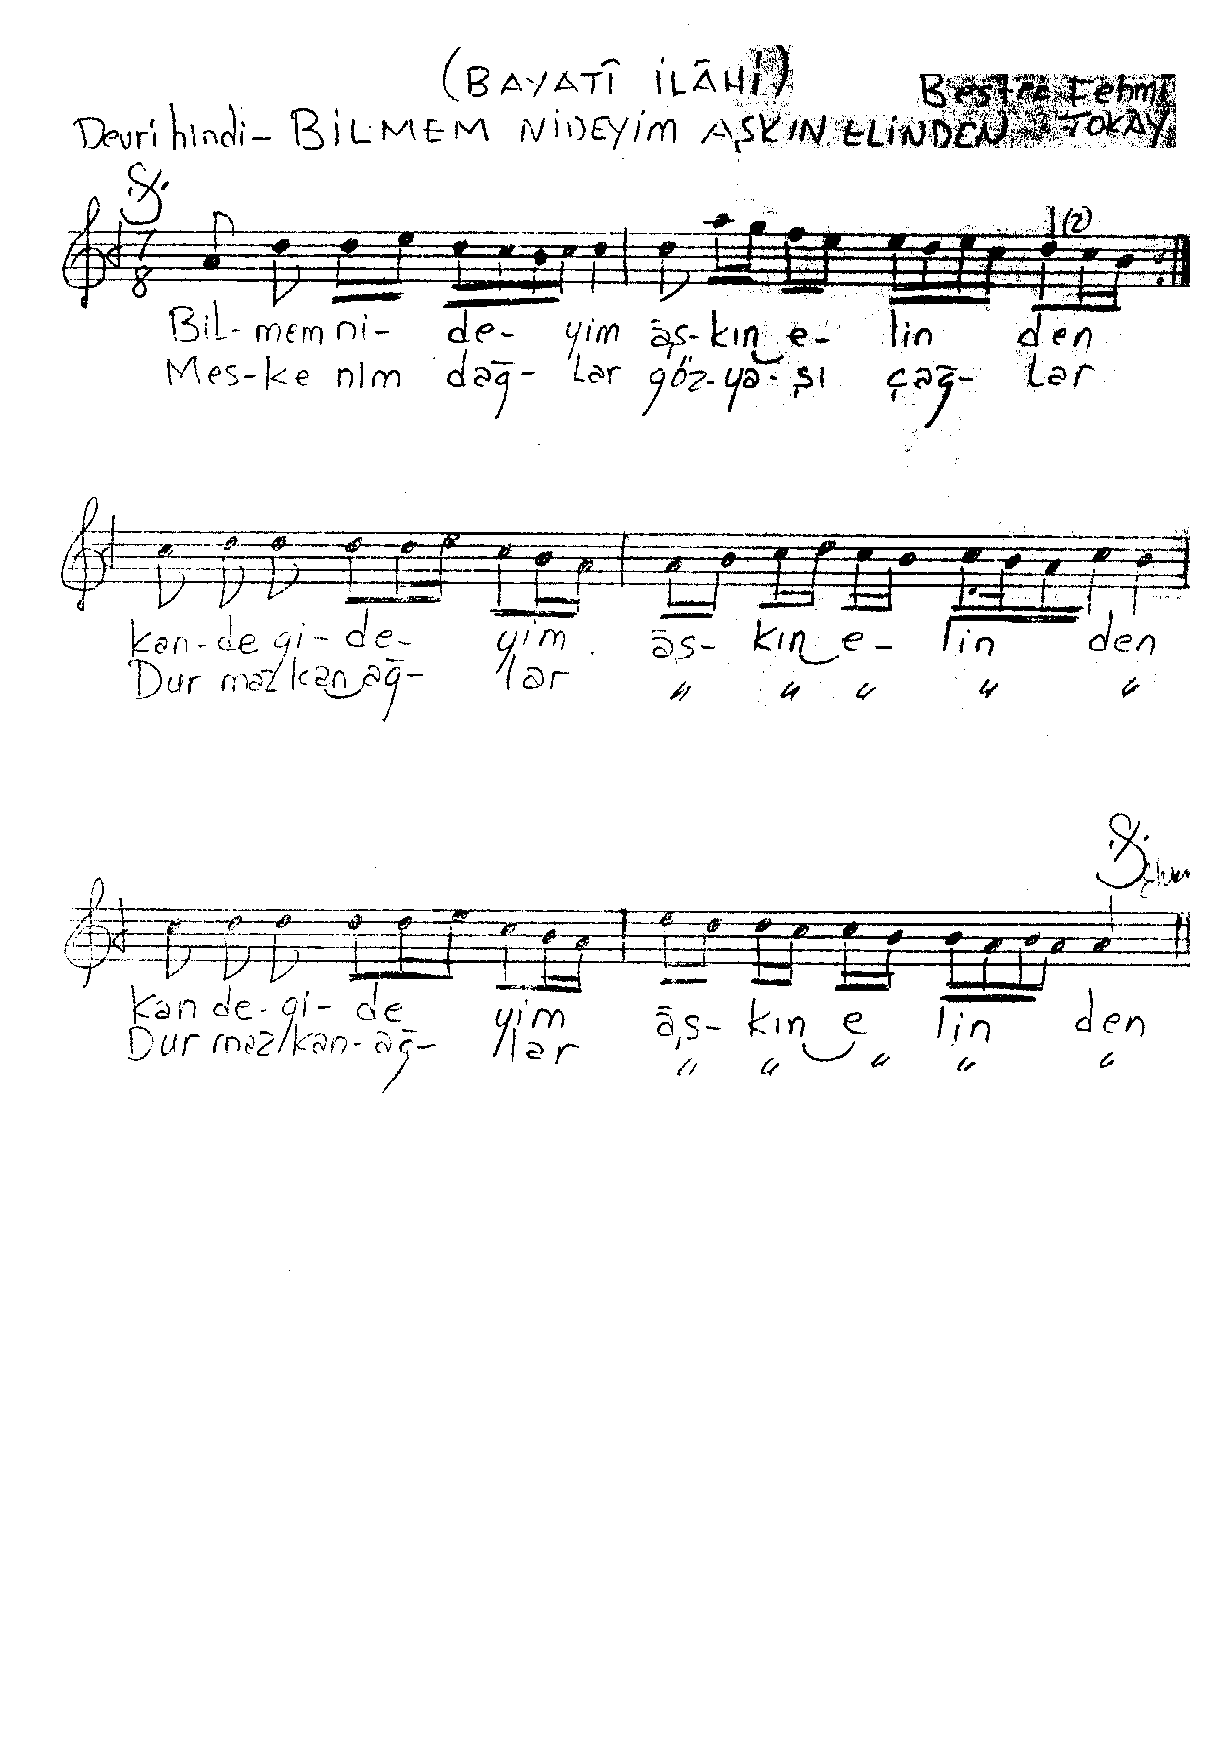 (BAYATÎ İLÂHİ)
Beste: Fehmi
TOKAY
Devri hindi - BİLMEM NİDEYİM AŞKIN ELİNDEN
7
8
(2)
Bil- mem ni- de- yim āş- kın e- lin den
Mes- ke nim dağ- lar göz- ya- şı çağ- lar
kan- de gi- de- yim āş- kın e- lin den
Dur maz/kan ağ- lar " " " " "
kan de- gi- de yim āş- kın e lin den
Dur maz/kan- ağ- lar " " " " "